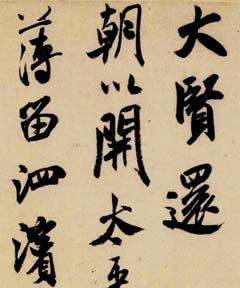 大賢還
朝以開太平
薄留泗濱